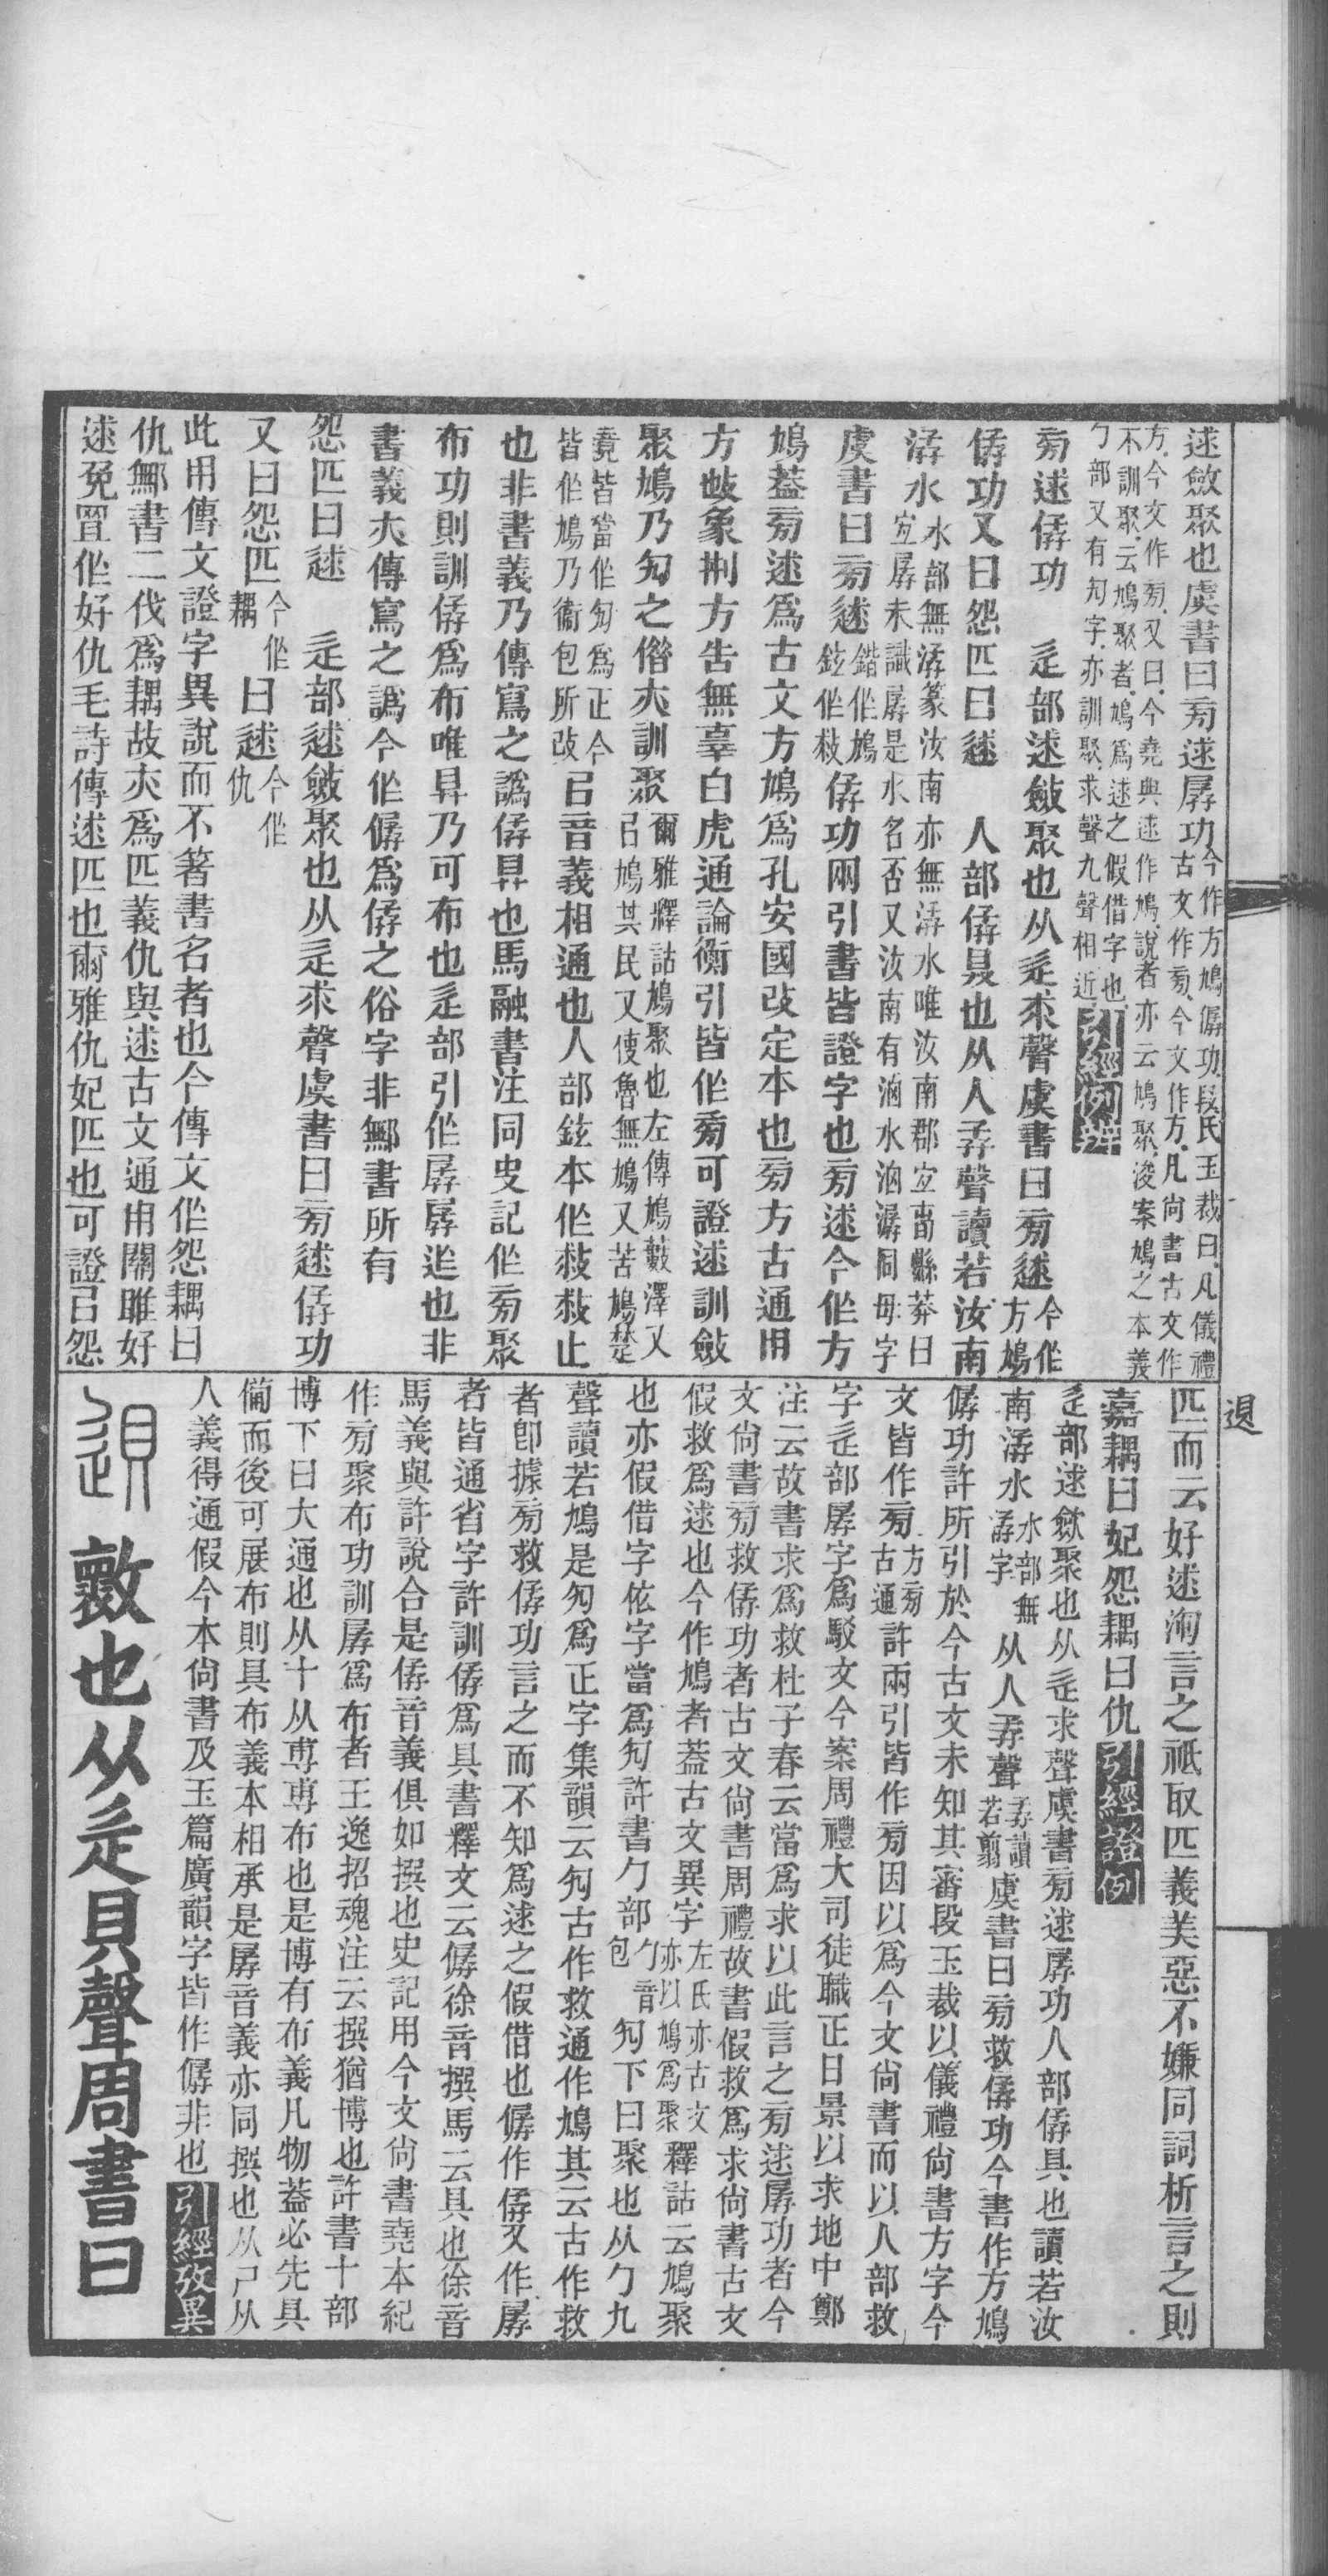 逑斂聚也虞書曰㫄逑孱功今作方鳩僝功段氏玉裁曰凡儀禮古文作㫄今文作方凡尚書古文作
方今文作㫄又曰今堯典逑作鳩說者亦云鳩聚浚案鳩之本義不訓聚云鳩聚者鳩爲逑之假借字也
勹部又有勼字亦訓聚求聲九聲相近引經例辨
㫄逑僝功　辵部逑斂聚也从辵求聲虞書曰㫄逑今作方鳩
僝功又曰怨匹曰逑　人部僝具也从人孨聲讀若汝南
潺水水部無潺篆汝南亦無潺水唯汝南郡
虞書曰㫄逑鍇作鳩鉉作救僝功兩引書皆證字也㫄逑今作方
鳩葢㫄逑爲古文方鳩爲孔安國改定本也㫄方古通用
方施象刑方告無辜白虎通論衡引皆作㫄可證逑訓斂
聚鳩乃勼之偕亦訓聚爾雅釋詁鳩聚也左傳鳩藪澤又㠯鳩其民又使魯無鳩又苦鳩楚
竟皆當作勼爲正今皆作鳩乃衞包所改㠯音義相通也人部鉉本作救救止
也非書義乃傳寫之譌僝具也馬融書注同史記作㫄聚
布功則訓僝爲布唯具乃可布也辵部引作孱孱迮也非
書義亦傳寫之譌今作僝爲僝之俗字非鄦書所有
怨匹曰逑　辵部逑斂聚也从辵求聲虞書曰㫄逑僝功
又曰怨匹今作耦曰逑今作仇
此用傳文證字異說而不著書名者也今傳文作怨耦曰
仇鄦書二伐爲耦故亦爲匹義仇與逑古文通用關雎好
逑兔罝作好仇毛詩傳逑匹也爾雅仇妃匹也可證㠯怨
匹而云好逑渾言之祇取匹義美惡不嫌同詞析言之則
嘉耦曰妃怨耦曰仇引經證例
辵部逑斂聚也从辵求聲虞書㫄逑孱功人部僝具也讀若汝
南潺水水部無潺字从人孨聲孨讀若翦虞書曰㫄救僝功今書作方鳩
僝功許所引於今古文未知其審段玉裁以儀禮尚書方字今
文皆作㫄方㫄古通許兩引皆作㫄因以爲今文尚書而以人部救
字辵部孱字爲駁文今案周禮大司徒職正日景以求地中鄭
注云故書求爲救杜子春云當爲求以此言之㫄逑孱功者今
文尚書㫄救僝功者古文尚書周禮故書假救爲求尚書古文
假救爲逑也今作鳩者葢古文異字左氏亦古文亦以鳩爲聚釋詁云鳩聚
也亦假借字依字當爲勼許書勹部勹音包勼下曰聚也从勹九
聲讀若鳩是勼爲正字集韻云勼古作救通作鳩其云古作救
者卽據㫄救僝功言之而不知爲逑之假借也僝作僝又作孱
者皆通省字許訓僝爲具書釋文云僝徐音撰馬云具也徐音
馬義與許說合是僝音義俱如撰也史記用今文尚書堯本紀
作㫄聚布功訓孱爲布者王逸招魂注云撰猶博也許書十部
博下曰大通也从十从尃尃布也是博有布義凡物葢必先具
備而後可展布則具布義本相承是孱音義亦同撰也从尸从
人義得通假今本尚書及玉篇廣韻字皆作僝非也引經攷異
敗也从辵貝聲周書曰
退